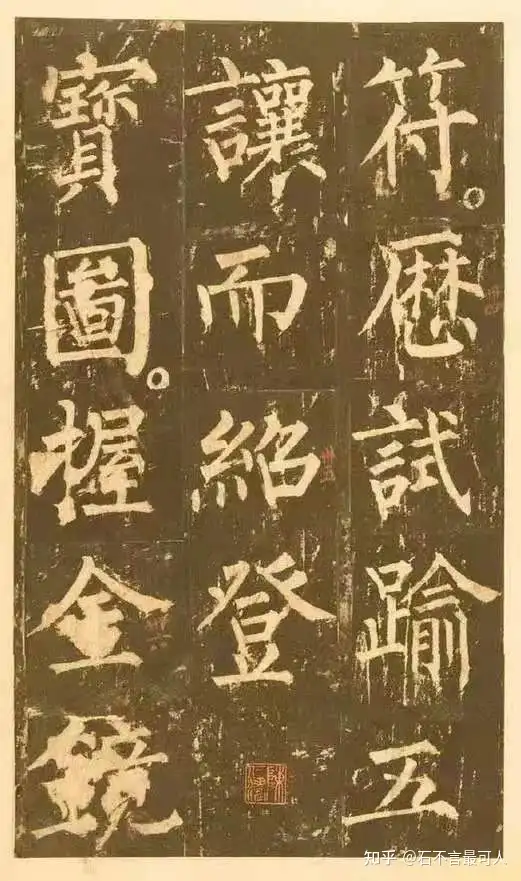 符。歷試踰五
讓而紹登
寶圖。握金鏡
卅五
知乎 @石不言最可人